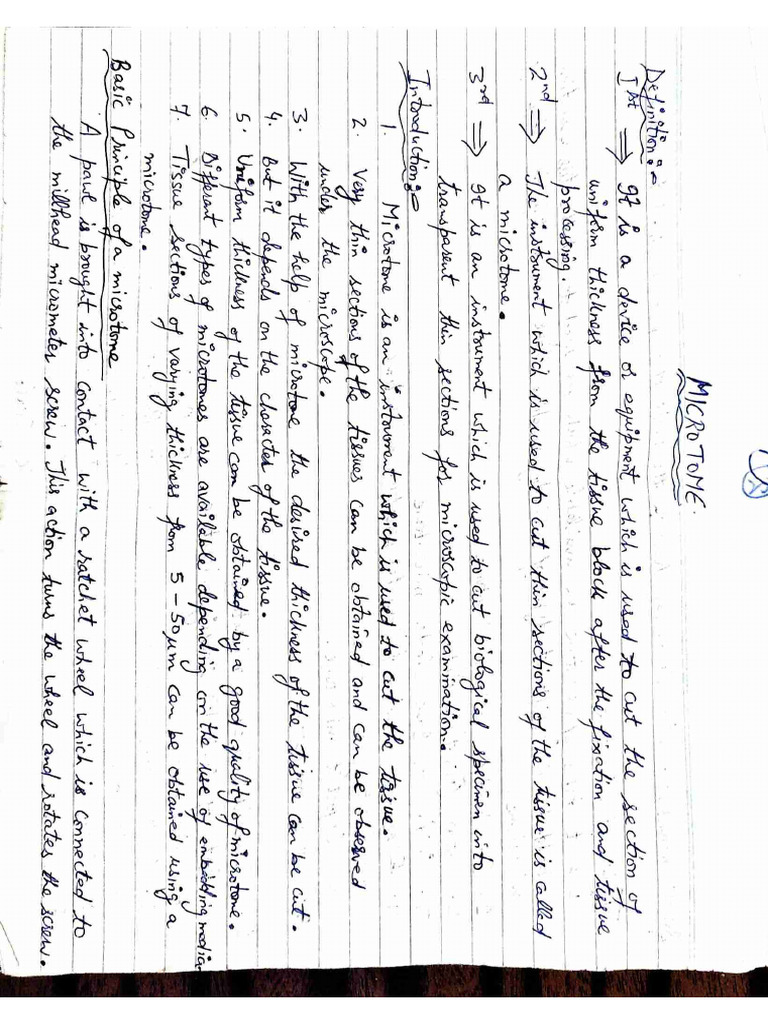 MICROTOME
Definition:-
Ist ⇒ It is a device or equipment which is used to cut the section of
uniform thickness from the tissue block after the fixation and tissue
processing.
2nd ⇒ The instrument which is used to cut thin sections of the tissue is called
a microtome.
3rd ⇒ It is an instrument which is used to cut biological specimen into
transparent thin sections for microscopic examination.
Introduction:-
1. Microtome is an instrument which is used to cut the tissue.
2. Very thin sections of the tissues can be obtained and can be observed
under the microscope.
3. With the help of microtome the desired thickness of the tissue can be cut.
4. But it depends on the character of the tissue.
5. Uniform thickness of the tissue can be obtained by a good quality of microtome.
6. Different types of microtomes are available depending on the use of embedding media.
7. Tissue sections of varying thickness from 5-50μm can be obtained using a
microtome.
Basic Principle of a microtome
A pawl is brought into contact with a ratchet wheel which is connected to
the millhead micrometer screw. This action turns the wheel and rotates the screw.